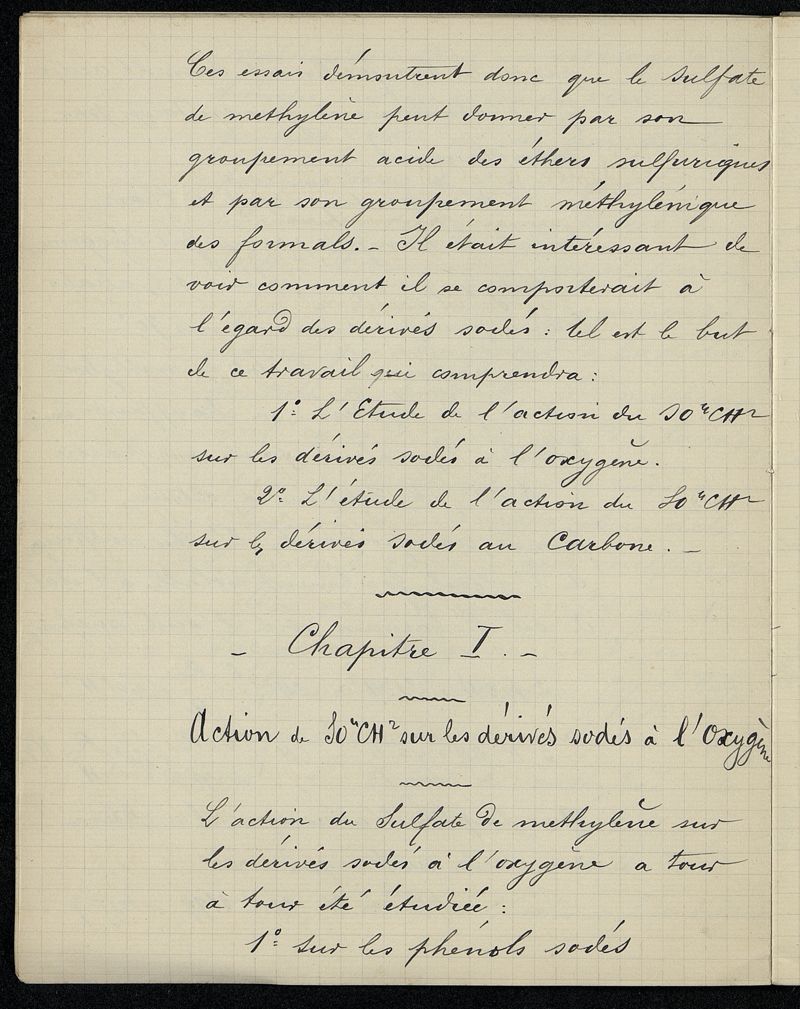 Ces essais démontrent donc que le sulfate
de methylène peut donner par son
groupement acide des éthers sulfuriques
et par son groupement méthylénique
des formals. _ Il était intéressant de
voir comment il se comporterait à
l'égard des dérivés sodés : tel est le but
de ce travail qui comprendra :
1º L'Etude de l'action du SO⁴CH²
sur les dérivés sodés à l'oxygène.
2º L'étude de l'action du SO⁴CH²
sur les dérivés sodés au Carbone. _
_ Chapitre I. _
Action de SO⁴CH² sur les dérivés sodés à l'Oxygène
L'action du Sulfate de methylène sur
les dérivés sodés à l'oxygène a tour
à tour été étudiée :
1º sur les phénols sodés